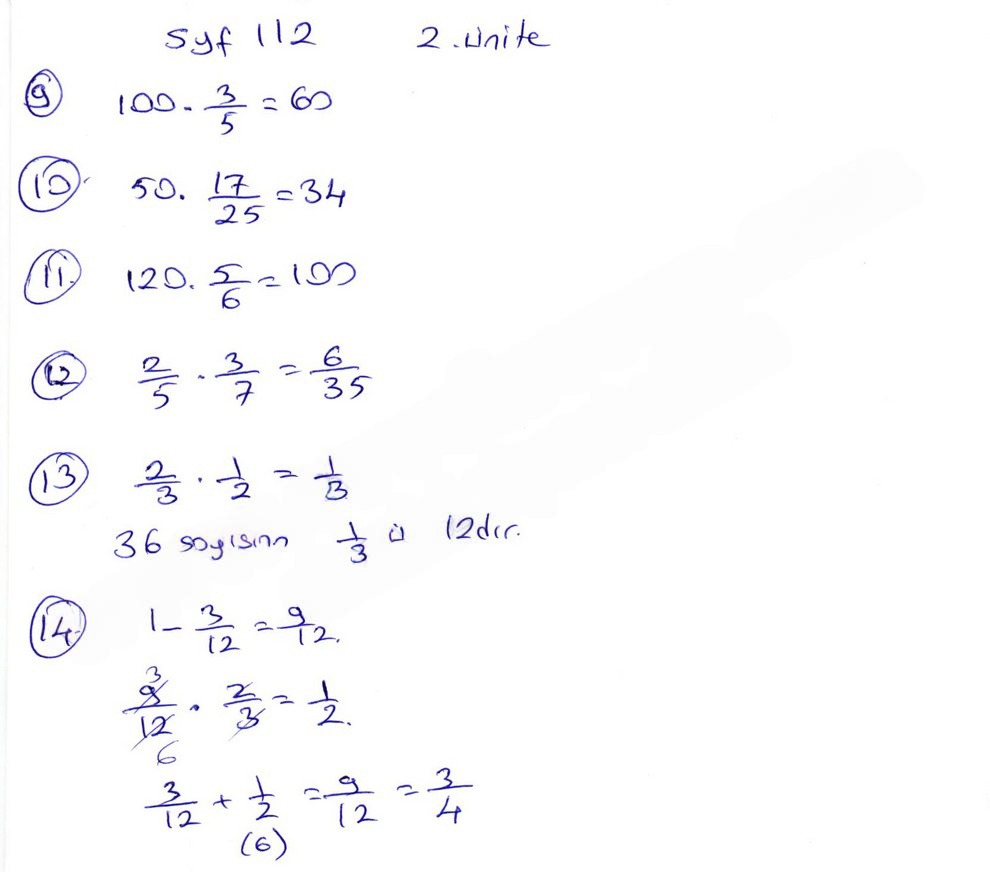 Syf 112 2.ünite
9 100 . 3/5 = 60
10 50 . 17/25 = 34
11. 120 . 5/6 = 100
12 2/5 . 3/7 = 6/35
13 2/3 . 1/2 = 1/3
36 sayısının 1/3 ü 12dır.
14. 1 - 3/12 = 9/12.
3
9/12 . 2/3 = 1/2.
6
3/12 + 1/2 = 9/12 = 3/4
(6)